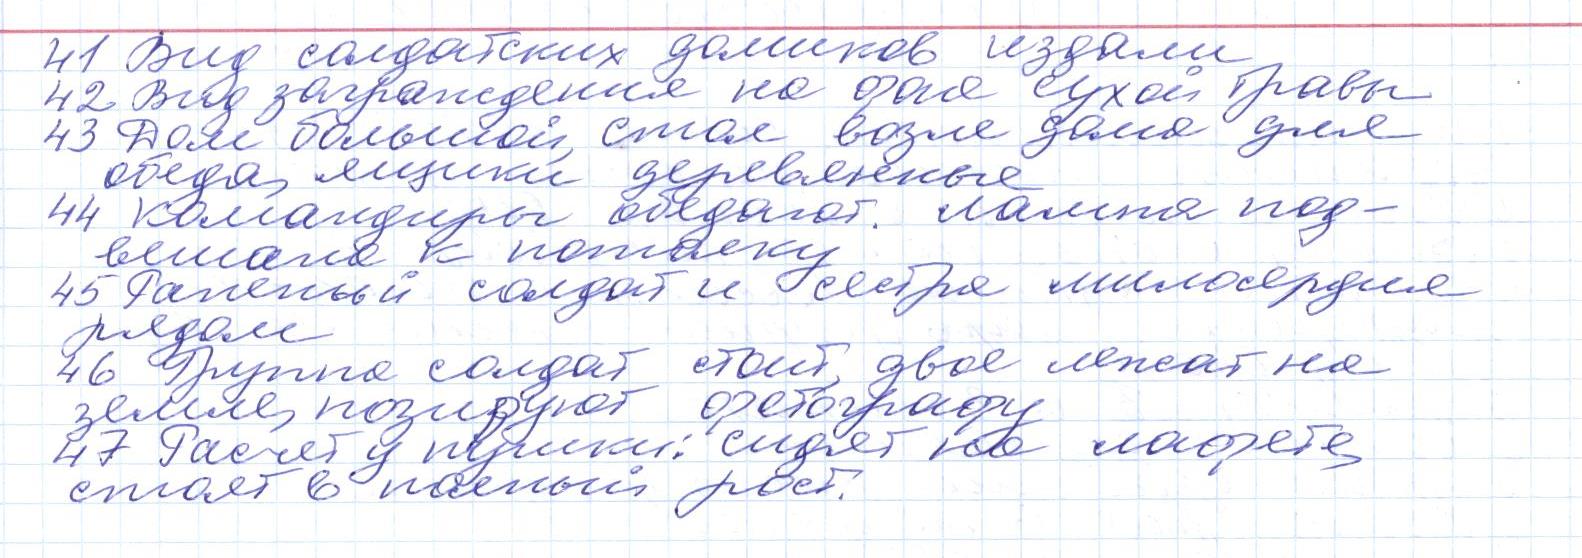 41 Вид солдатских домиков издали
42 Вид заграждения на фоне сухой травы
43 Дом большой, стол возле дома для
обеда, ящики деревянные
44 Командиры обедают. Лампа под-
вешана к потолку
45 Раненый солдат и сестра милосердия
рядом
46 Группа солдат стоит, двое лежат на
земле, позируют фотографу
47 Расчет у пушки: сидят на лафете,
стоят в полный рост.